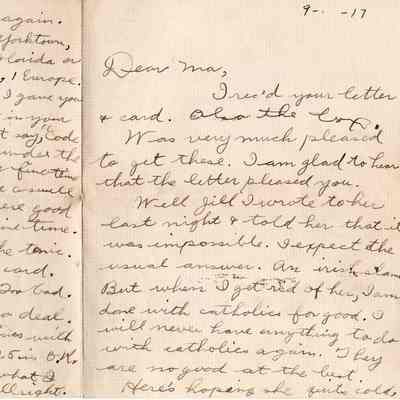 again.
Yorktown,
Florida or
, 1 Europe.
I gave you
in your
t say, Code
under the
fine time
usual
ere good
ine time.
the tonic.
card.
Too bad.
a deal.
ies with
25 is O.K.
what I
llright.
9- -17
Dear Ma,
I rec'd your letter
& card. Also the box.
Was very much pleased
to get these. I am glad to hear
that the letter pleased you.
Well Jill I wrote to her
last night & told her that it
was impossible. I expect the
usual answer. An irish
But when I get red of her, I am
done with catholics for good. I
will never have anything to do
with catholics again. They
are no good at the best.
Here's hoping she quits cold,